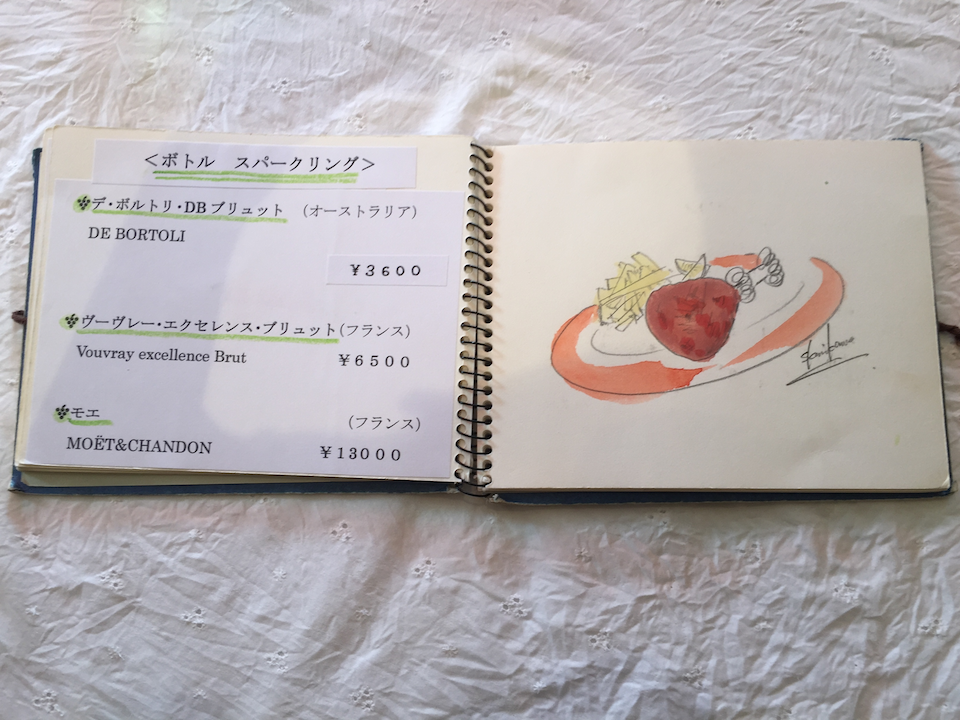 ＜ボトル　スパークリング＞
デ・ボルトリ・DBブリュット　（オーストラリア）
DE BORTOLI
￥3600
ヴーヴレー・エクセレンス・ブリュット(フランス)
Vouvray excellence Brut　￥6500
モエ　(フランス)
MOËT&CHANDON　￥13000